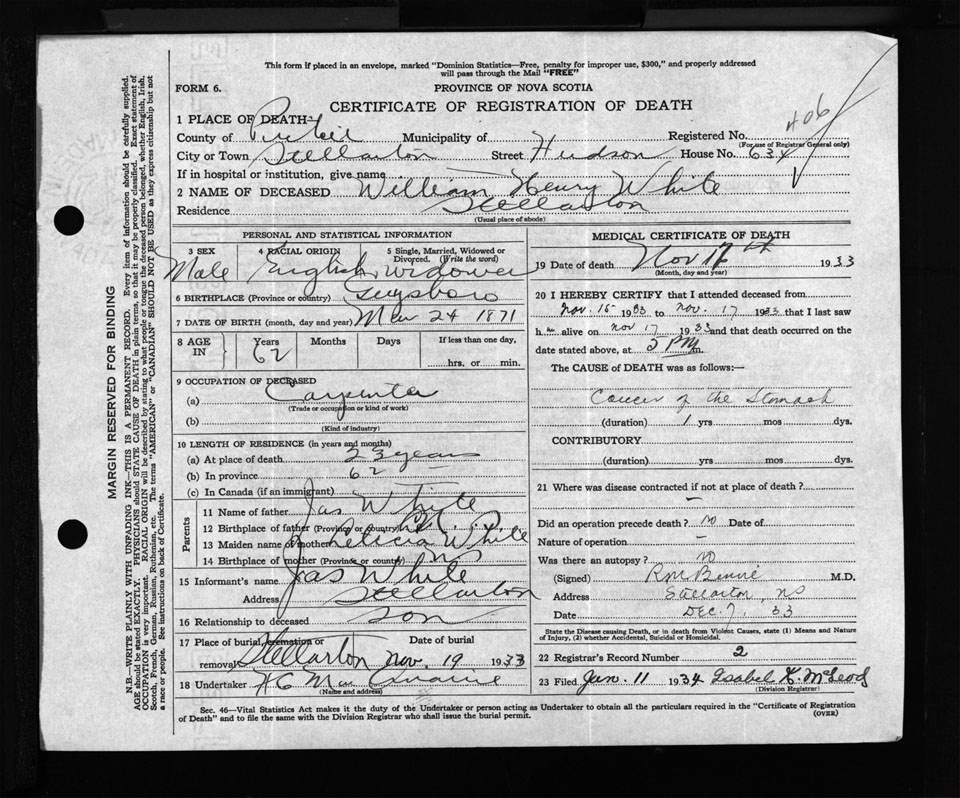 This form if placed in an envelope, marked "Dominion Statistics—Free, penalty for improper use, $300," and properly addressed
will pass through the Mail "FREE"
FORM 6. PROVINCE OF NOVA SCOTIA
CERTIFICATE OF REGISTRATION OF DEATH
406
1 PLACE OF DEATH—
County of Municipality of Registered No.
(For use of Registrar General only)
City or Town Stellarton Street Hudson House No. 634
If in hospital or institution, give name
2 NAME OF DECEASED William Henry White
Residence Stellarton
(Usual place of abode)
PERSONAL AND STATISTICAL INFORMATION
3 SEX 4 RACIAL ORIGIN 5 Single, Married, Widowed or Divorced. (Write the word)
Male English Widower
6 BIRTHPLACE (Province or country) Guysboro
7 DATE OF BIRTH (month, day and year) Mar 24 1871
8 AGE IN Years Months Days If less than one day,
62 hrs. or min.
9 OCCUPATION OF DECEASED
(a) Carpenter
(Trade or occupation or kind of work)
(b)
(Kind of industry)
10 LENGTH OF RESIDENCE (in years and months)
(a) At place of death 23 years
(b) In province 62
(c) In Canada (if an immigrant)
Parents
11 Name of father Jas White
12 Birthplace of father (Province or country)
13 Maiden name of mother Leticia White
14 Birthplace of mother (Province or country) NS
15 Informant's name Jas White
Address Stellarton
16 Relationship to deceased Son
17 Place of burial, cremation or removal Stellarton Date of burial Nov. 19 1933
18 Undertaker
(Name and address)
MEDICAL CERTIFICATE OF DEATH
19 Date of death Nov 17th 1933
(Month, day and year)
20 I HEREBY CERTIFY that I attended deceased from
Nov. 15 1933 to Nov. 17 1933 that I last saw
h alive on Nov 17 1933 and that death occurred on
date stated above, at 5 PM m.
The CAUSE of DEATH was as follows:—
Cancer of the Stomach
(duration) 1 yrs mos dys.
CONTRIBUTORY
(duration) yrs. mos. dys.
21 Where was disease contracted if not at place of death?
—
Did an operation precede death? no Date of
Nature of operation —
Was there an autopsy? no
(Signed) M.D.
Address Stellarton, NS
Date Dec. 7, 33
State the Disease causing Death, or in death from Violent Causes, state (1) Means and Nature of Injury, (2) whether Accidental, Suicidal or Homicidal.
22 Registrar's Record Number 2
23 Filed Jan. 11 1934 Isabel K. McLeod
(Division Registrar)
Sec. 46—Vital Statistics Act makes it the duty of the Undertaker or person acting as Undertaker to obtain all the particulars required in the "Certificate of Registration
of Death" and to file the same with the Division Registrar who shall issue the burial permit. (OVER)
MARGIN RESERVED FOR BINDING
N.B.—WRITE PLAINLY WITH UNFADING INK—THIS IS A PERMANENT RECORD. Every item of information should be carefully supplied.
AGE should be stated EXACTLY. PHYSICIANS should STATE CAUSE OF DEATH in plain terms, so that it may be properly classified. Exact statement of
OCCUPATION is very important. RACIAL ORIGIN will be described by stating to what people or tongue the deceased person belonged, whether English, Irish,
Scotch, French, German, Russian, Ruthenian, etc. The terms "AMERICAN" or "CANADIAN" SHOULD NOT BE USED as they express citizenship but not
a race or people. See instructions on back of Certificate.